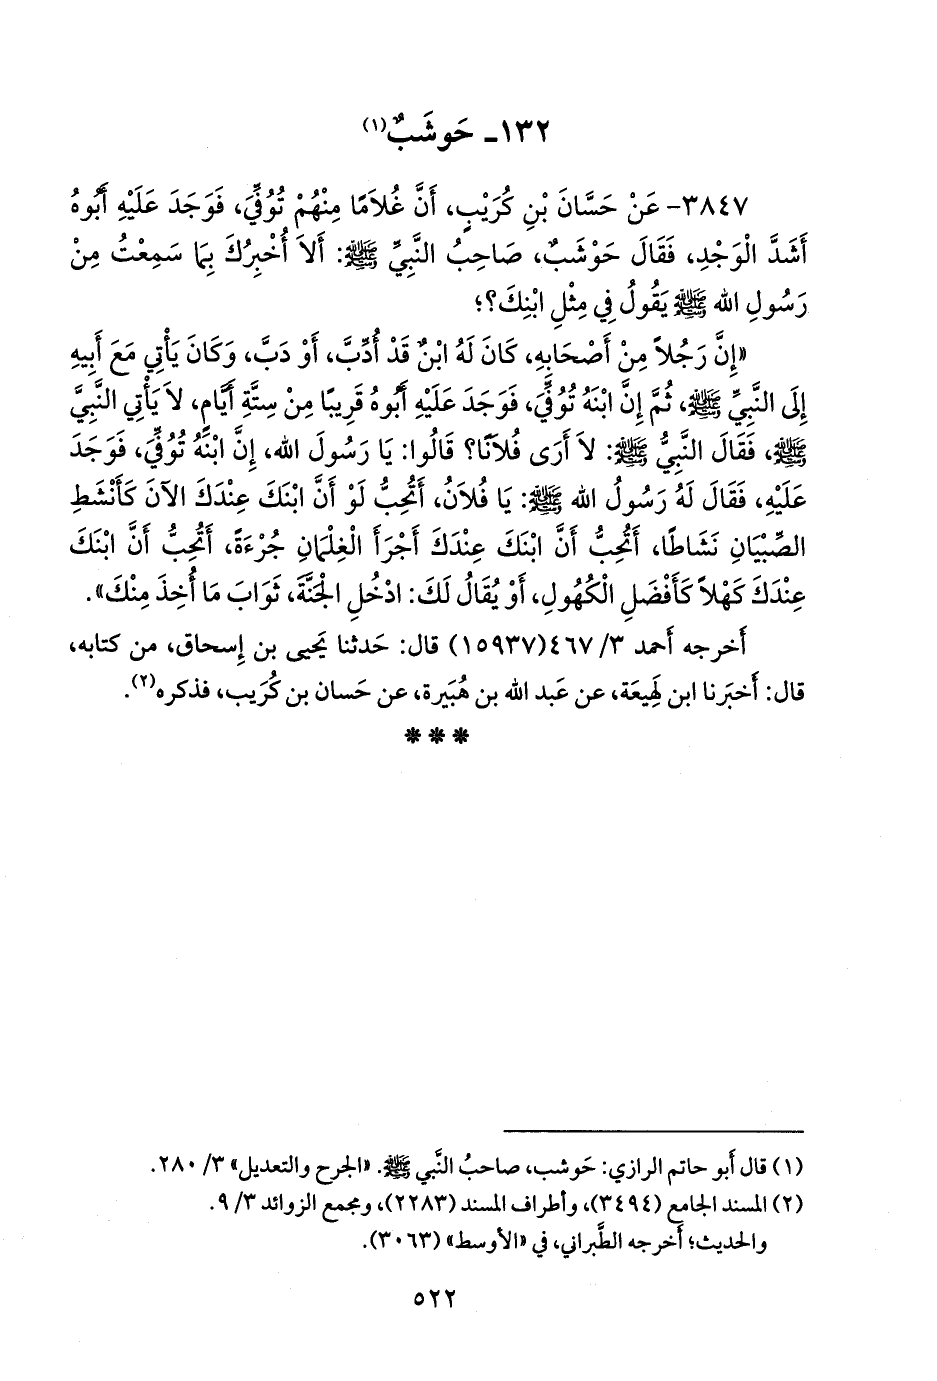 ١٣٢ـ حَوشَبٌ(١)
٣٨٤٧- عَنْ حَسَّانَ بْنِ كُرَيْبٍ، أَنَّ غُلَامًا مِنْهُمْ تُوُفِّيَ، فَوَجَدَ عَلَيْهِ أَبُوهُ
أَشَدَّ الْوَجْدِ، فَقَالَ حَوْشَبٌ، صَاحِبُ النَّبِيِّ ﷺ: أَلاَ أُخْبِرُكَ بِمَا سَمِعْتُ مِنْ
رَسُولِ الله ﷺ يَقُولُ فِي مِثْلِ ابْنِكَ؟؛
«إِنَّ رَجُلاً مِنْ أَصْحَابِهِ، كَانَ لَهُ ابْنٌ قَدْ أُدِّبَّ، أَوْ دَبَّ، وَكَانَ يَأْتِي مَعَ أَبِيهِ
إِلَى النَّبِيِّ ﷺ، ثُمَّ إِنَّ ابْنَهُ تُوُفِّيَ، فَوَجَدَ عَلَيْهِ أَبُوهُ قَرِيبًا مِنْ سِتَّةِ أَيَّامٍ، لاَ يَأْتِي النَّبِيَّ
ﷺ، فَقَالَ النَّبِيُّ ﷺ: لاَ أَرَى فُلاَنًا؟ قَالُوا: يَا رَسُولَ الله، إِنَّ ابْنَهُ تُوُفِّيَ، فَوَجَدَ
عَلَيْهِ، فَقَالَ لَهُ رَسُولُ الله ﷺ: يَا فُلاَنُ، أَتُحِبُّ لَوْ أَنَّ ابْنَكَ عِنْدَكَ الآنَ كَأَنْشَطِ
الصِّبْيَانِ نَشَاطًا، أَتُحِبُّ أَنَّ ابْنَكَ عِنْدَكَ أَجْرَأَ الْغِلْمَانِ جُرْءَةً، أَتُحِبُّ أَنَّ ابْنَكَ
عِنْدَكَ كَهْلاً كَأَفْضَلِ الْكُهُولِ، أَوْ يُقَالُ لَكَ: ادْخُلِ الْجَنَّةَ، ثَوَابَ مَا أُخِذَ مِنْكَ».
أَخرجه أَحمد ٣/ ٤٦٧(١٥٩٣٧) قال: حَدثنا يَحيى بن إِسحاق، من كتابه،
قال: أَخبَرنا ابن لَهِيعَة، عن عَبد الله بن هُبَيرة، عن حَسان بن كُرَيب، فذكره(٢).
* * *
(١) قال أَبو حاتم الرازي: حَوشب، صاحبُ النَّبي ﷺ. «الجرح والتعديل» ٣/ ٢٨٠.
(٢) المسند الجامع (٣٤٩٤)، وأطراف المسند (٢٢٨٣)، ومجمع الزوائد ٣/ ٩.
والحديث؛ أَخرجه الطَّبراني، في «الأوسط» (٣٠٦٣).
٥٢٢